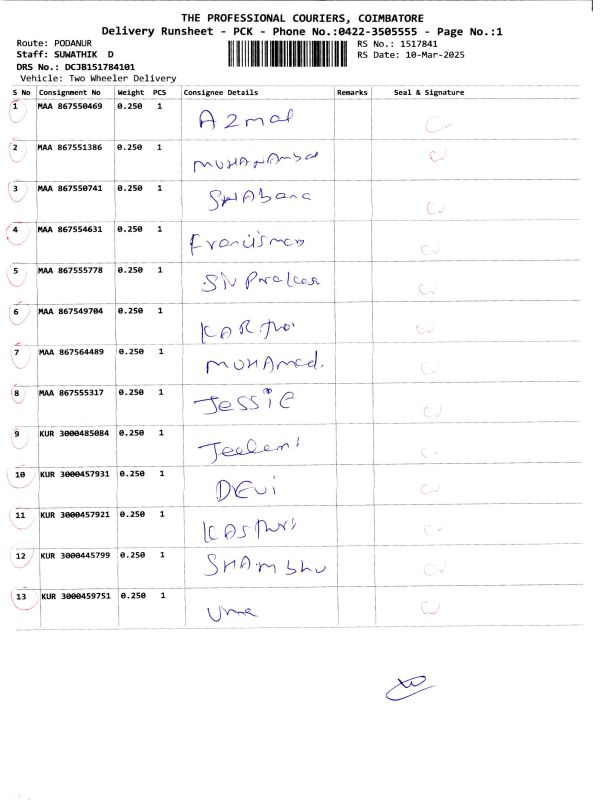 THE PROFESSIONAL COURIERS, COIMBATORE
Delivery Runsheet - PCK - Phone No.:0422-3505555 - Page No.:1
Route: PODANUR
RS No.: 1517841
Staff: SUWATHIK D
RS Date: 10-Mar-2025
DRS No.: DCJB151784101
Vehicle: Two Wheeler Delivery
S No Consignment No Weight PCS Consignee Details Remarks Seal & Signature
1 MAA 867550469 0.250 1 AZmal
2 MAA 867551386 0.250 1
3 MAA 867550741 0.250 1 SHAbana
4 MAA 867554631 0.250 1
5 MAA 867555778 0.250 1
6 MAA 867549704 0.250 1
7 MAA 867564489 0.250 1 MUHAmed.
8 MAA 867555317 0.250 1 JESSIE
9 KUR 3000485084 0.250 1
10 KUR 3000457931 0.250 1 DEVi
11 KUR 3000457921 0.250 1
12 KUR 3000445799 0.250 1 SHAmbhu
13 KUR 3000459751 0.250 1 Uma